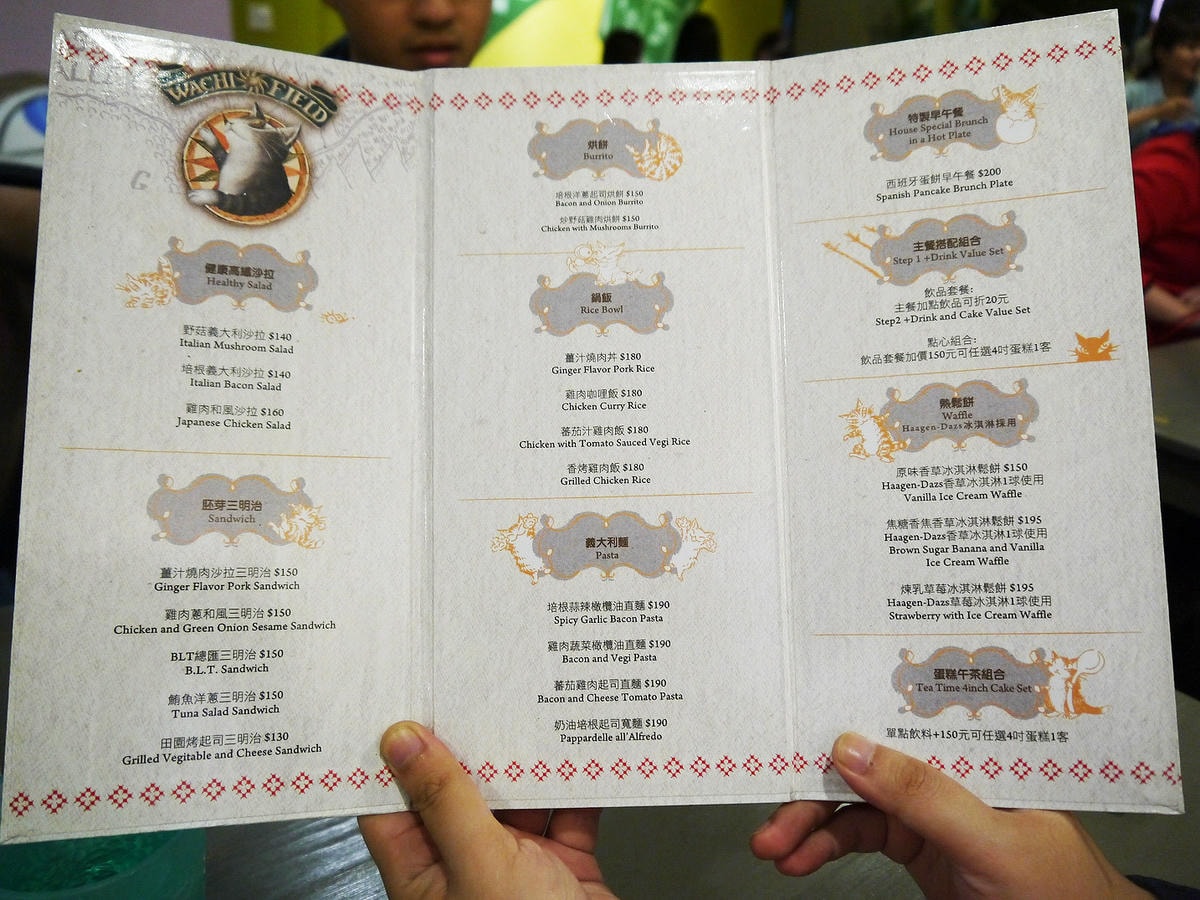 WACHI FIELD
G
健康高纖沙拉
Healthy Salad
野菇義大利沙拉 $140
Italian Mushroom Salad
培根義大利沙拉 $140
Italian Bacon Salad
雞肉和風沙拉 $160
Japanese Chicken Salad
胚芽三明治
Sandwich
薑汁燒肉沙拉三明治 $150
Ginger Flavor Pork Sandwich
雞肉蔥和風三明治 $150
Chicken and Green Onion Sesame Sandwich
BLT總匯三明治 $150
B.L.T. Sandwich
鮪魚洋蔥三明治 $150
Tuna Salad Sandwich
田園烤起司三明治 $130
Grilled Vegitable and Cheese Sandwich
烘餅
Burrito
培根洋蔥起司烘餅 $150
Bacon and Onion Burrito
炒野菇雞肉烘餅 $150
Chicken with Mushrooms Burrito
鍋飯
Rice Bowl
薑汁燒肉丼 $180
Ginger Flavor Pork Rice
雞肉咖哩飯 $180
Chicken Curry Rice
蕃茄汁雞肉飯 $180
Chicken with Tomato Sauced Vegi Rice
香烤雞肉飯 $180
Grilled Chicken Rice
義大利麵
Pasta
培根蒜辣橄欖油直麵 $190
Spicy Garlic Bacon Pasta
雞肉蔬菜橄欖油直麵 $190
Bacon and Vegi Pasta
蕃茄雞肉起司直麵 $190
Bacon and Cheese Tomato Pasta
奶油培根起司寬麵 $190
Pappardelle all'Alfredo
特製早午餐
House Special Brunch
in a Hot Plate
西班牙蛋餅早午餐 $200
Spanish Pancake Brunch Plate
主餐搭配組合
Step 1 +Drink Value Set
飲品套餐:
主餐加點飲品可折20元
Step2 +Drink and Cake Value Set
點心組合:
飲品套餐加價150元可任選4吋蛋糕1客
熱鬆餅
Waffle
Haagen-Dazs冰淇淋採用
原味香草冰淇淋鬆餅 $150
Haagen-Dazs香草冰淇淋1球使用
Vanilla Ice Cream Waffle
焦糖香蕉香草冰淇淋鬆餅 $195
Haagen-Dazs香草冰淇淋1球使用
Brown Sugar Banana and Vanilla
Ice Cream Waffle
煉乳草莓冰淇淋鬆餅 $195
Haagen-Dazs草莓冰淇淋1球使用
Strawberry with Ice Cream Waffle
蛋糕午茶組合
Tea Time 4inch Cake Set
單點飲料+150元可任選4吋蛋糕1客